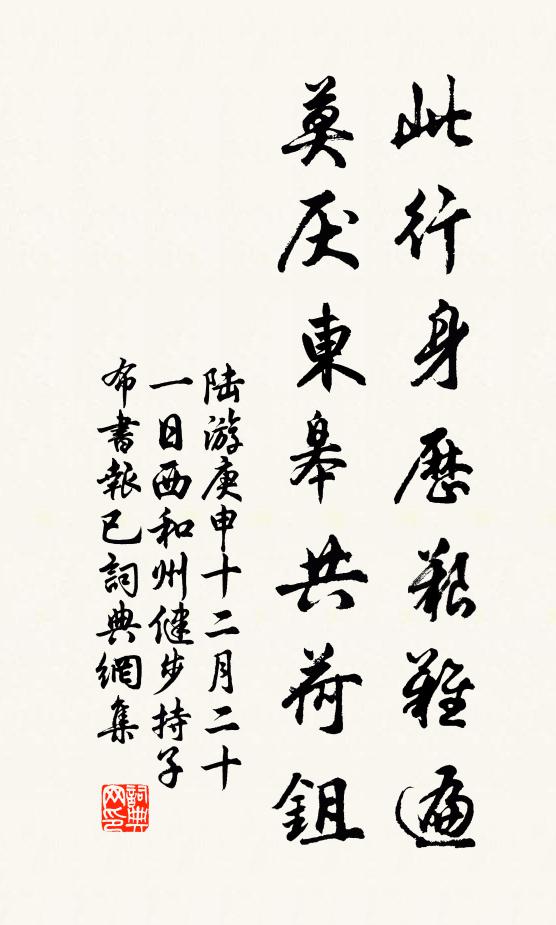 此行身歷艱難遍
莫厌東皋共荷鉏
陆游庚申十二月二十
一日西和州健步持子
布書報已詞典網集
詞典网印